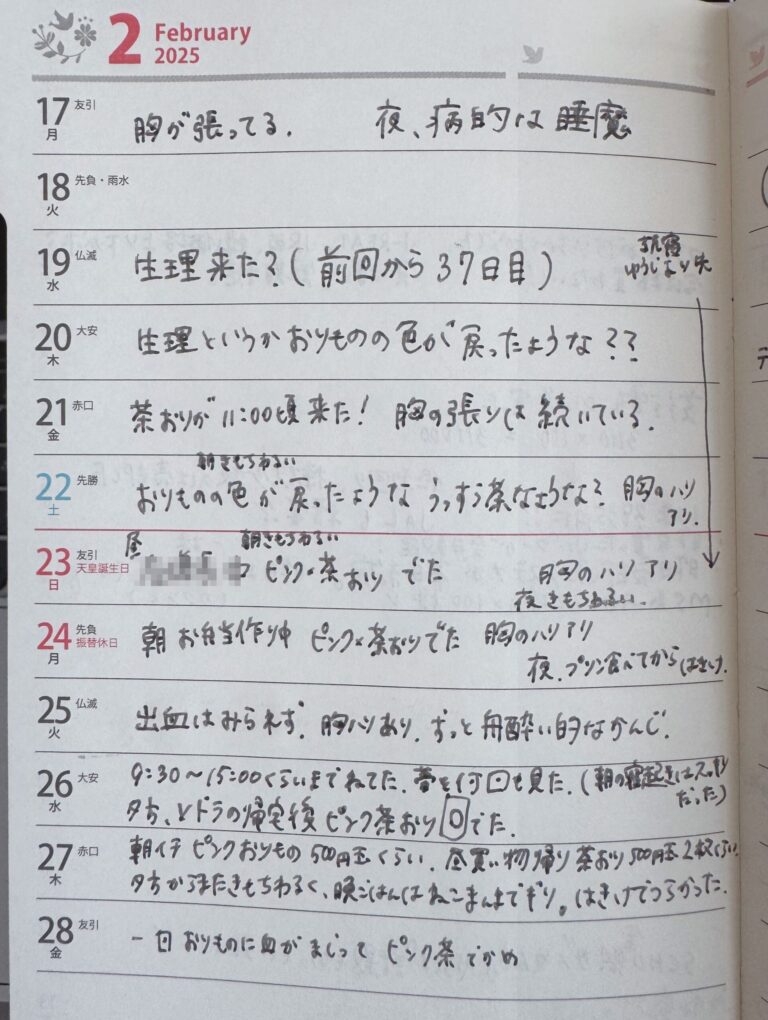 2 February 2025
17 月 友引 胸が張ってる. 夜、病的な睡魔
18 火 先負・雨水
19 水 仏滅 生理来た?(前回から37日目)
20 木 大安 生理というかおりものの色が戻ったような??
21 金 赤口 茶おりが11:00頃来た! 胸の張りは続いている.
朝きもちわるい
22 土 先勝 おりものの色が戻ったような うっすら茶なような? 胸のハリ
アリ.
昼 朝きもちわるい
23 日 友引 天皇誕生日 ピンク×茶おり でた 胸のハリ アリ
夜きもちわるい.
24 月 先負 振替休日 朝 お弁当作り中 ピンク×茶おりでた 胸のハリアリ
夜、プリン食べてからはきけ.
25 火 仏滅 出血はみられず. 胸ハリあり. ずっと船酔い的なかんじ.
26 水 大安 9:30〜15:00くらいまでねてた. 夢を何回も見た.(朝の寝起きはスッキリ
だった)
夕方、ドラの帰宅後 ピンク茶おり でた.
27 木 赤口 朝イチ ピンクおりもの 500円玉くらい. 昼買い物帰り 茶おり 500円玉2枚くらい.
夕方からまたきもちわるく、晩ごはんはねこまんまでギリ。はきけでつらかった.
28 金 友引 一日 おりものに血がまじって ピンク茶 でかめ